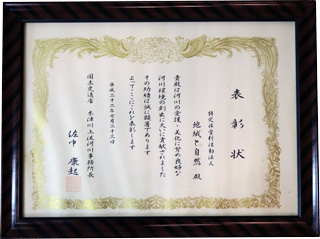 表彰状
特定非営利活動法人
地域と自然 殿
貴殿は河川の愛護、美化に努め良好な
河川環境の創出に大いに貢献されました
その功績は誠に顕著であります
よってここにこれを表彰します
平成二十二年七月二十三日
国土交通省 木津川上流河川事務所長
佐中 康起